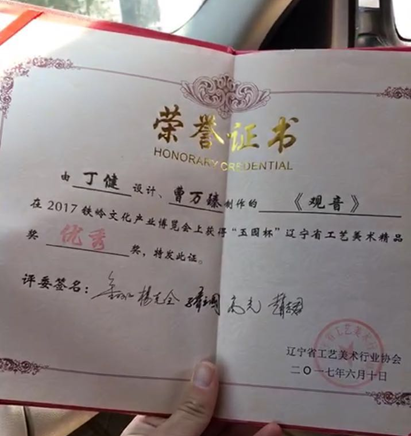 荣誉证书
HONORARY CREDENTIAL
由 丁健 设计、曹万臻制作的 《观音》
在2017铁岭文化产业博览会上获得“玉园杯”辽宁省工艺美术精品
奖 优秀 奖，特发此证。
评委签名：
辽宁省工艺美术行业协会
二〇一七年六月十日